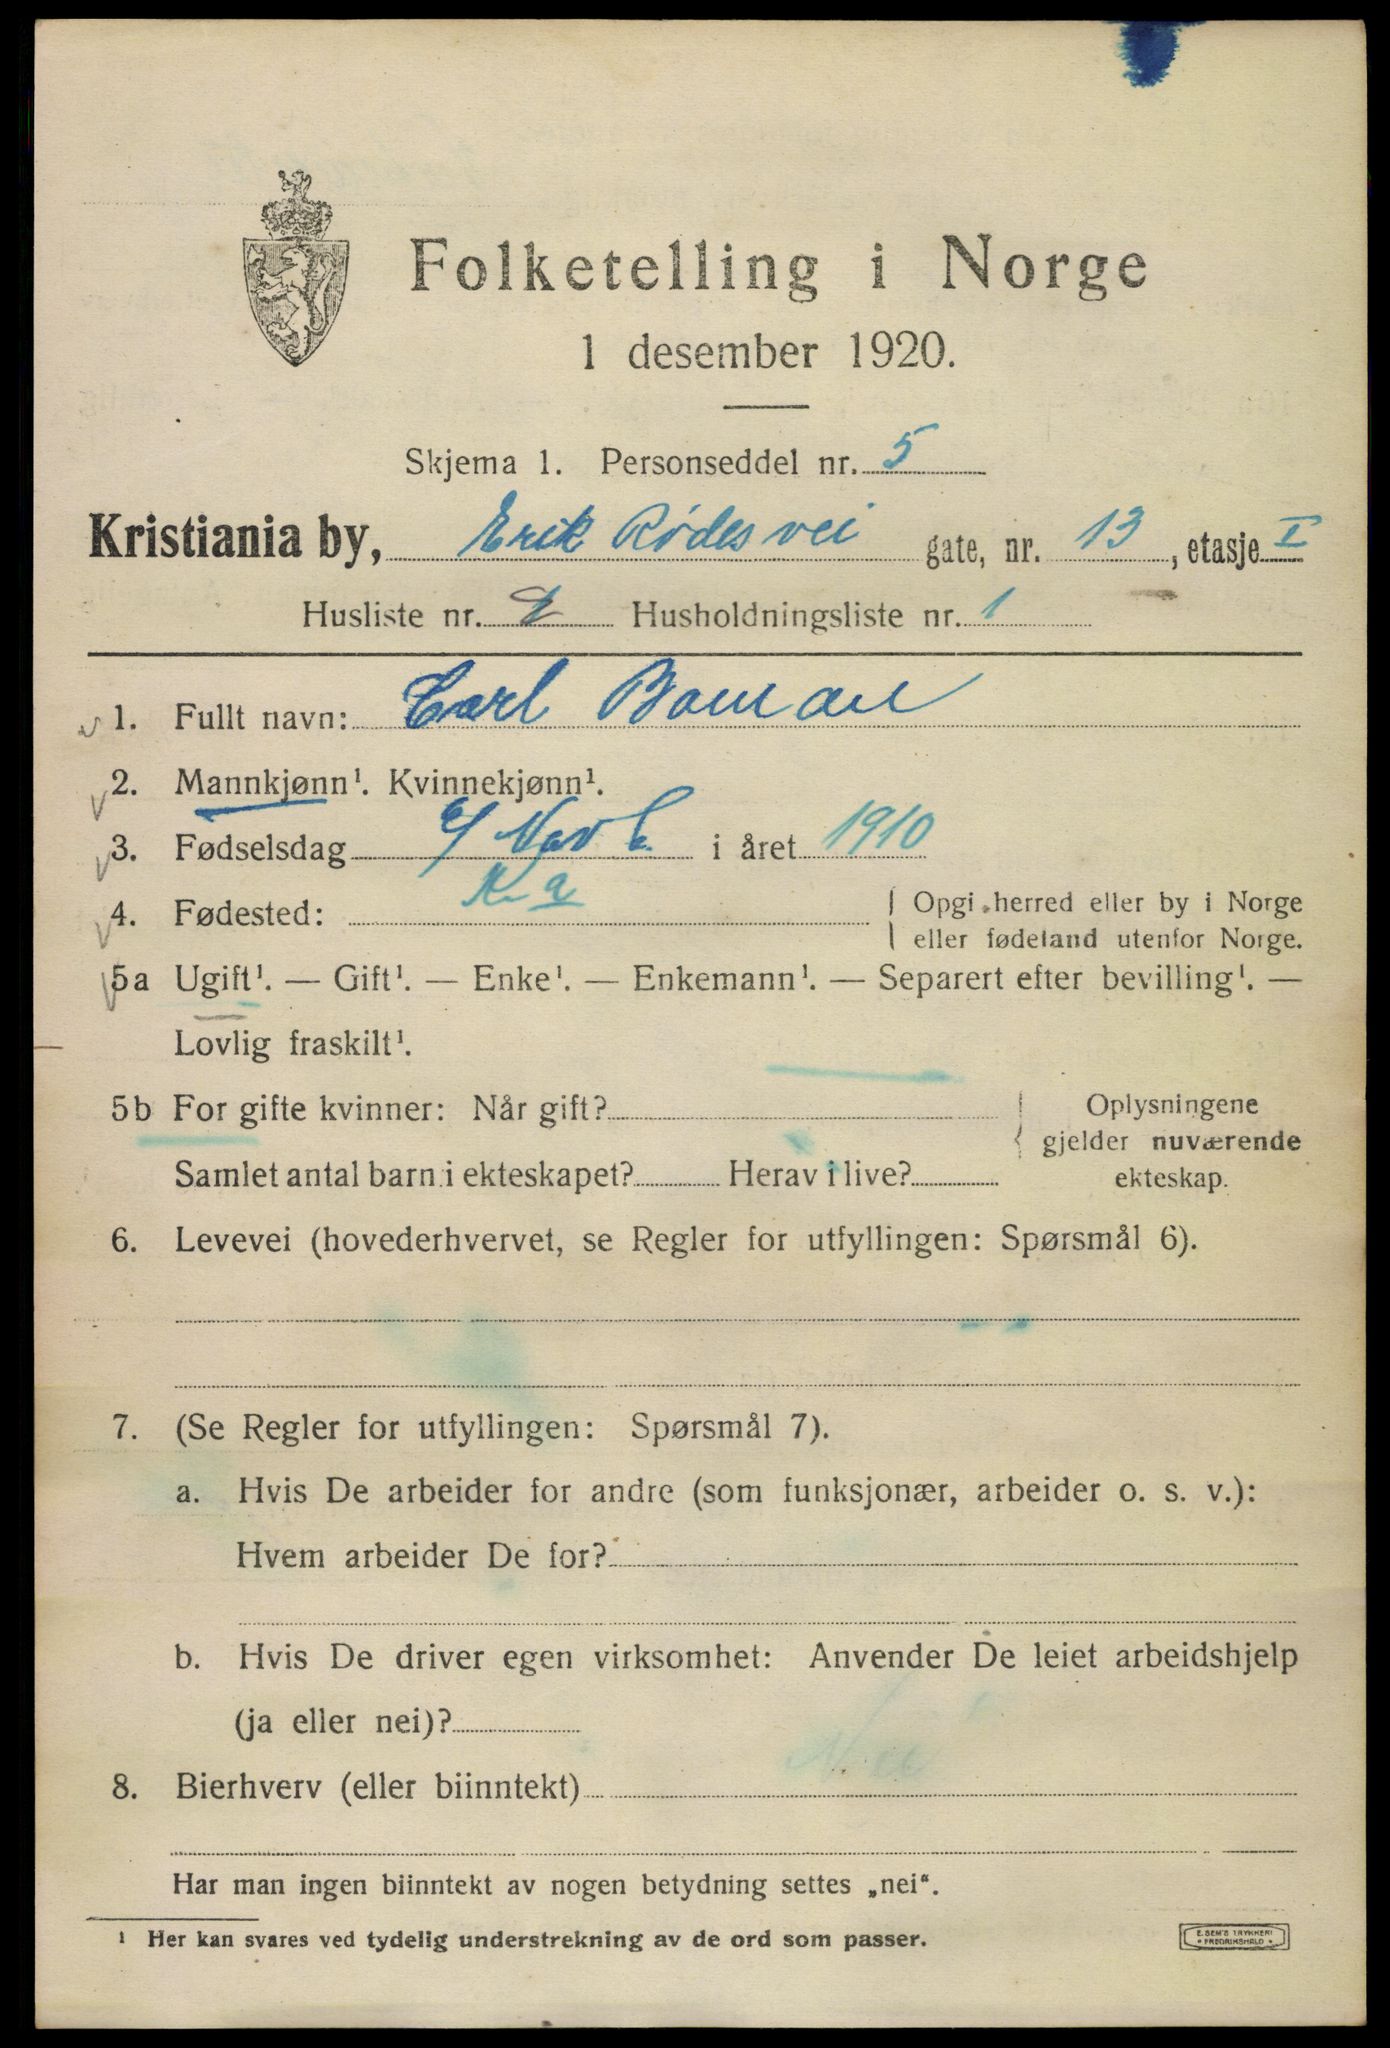 Folketelling i Norge
1 desember 1920.
Skjema 1. Personseddel nr. 5
Kristiania by, Erik Rødes vei gate, nr. 13, etasje I
Husliste nr. Husholdningsliste nr. 1
1. Fullt navn: Carl Bauman
2. Mannkjønn¹. Kvinnekjønn¹.
3. Fødselsdag Novb. i året 1910
4. Fødested: Kr a { Opgi herred eller by i Norge
eller fødeland utenfor Norge.
5a Ugift¹. — Gift¹. — Enke¹. — Enkemann¹. — Separert efter bevilling¹. —
Lovlig fraskilt¹.
5b For gifte kvinner: Når gift? { Oplysningene
gjelder nuværende
Samlet antal barn i ekteskapet? Herav i live? ekteskap.
6. Levevei (hovederhvervet, se Regler for utfyllingen: Spørsmål 6).
7. (Se Regler for utfyllingen: Spørsmål 7).
a. Hvis De arbeider for andre (som funksjonær, arbeider o. s. v.):
Hvem arbeider De for?
b. Hvis De driver egen virksomhet: Anvender De leiet arbeidshjelp
(ja eller nei)?
8. Bierhverv (eller biinntekt) Nei
Har man ingen biinntekt av nogen betydning settes „nei“.
¹ Her kan svares ved tydelig understrekning av de ord som passer.
E. SEM'S TRYKKERI
• FREDRIKSHALD •